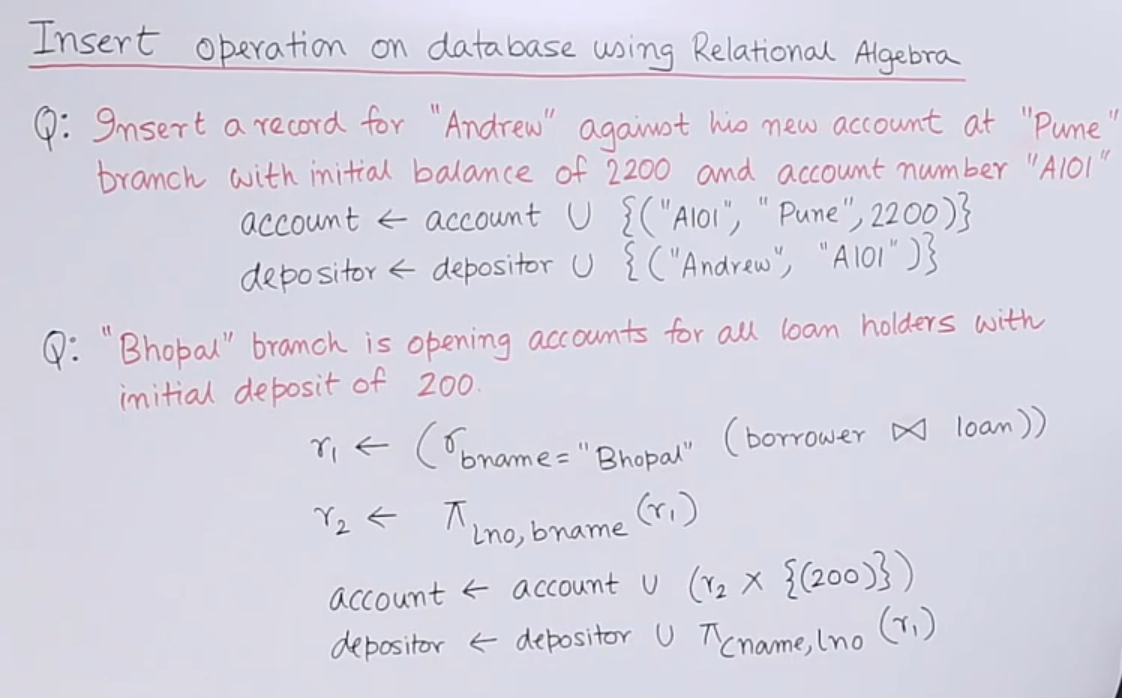 Insert operation on database using Relational Algebra
Q: Insert a record for "Andrew" against his new account at "Pune"
branch with initial balance of 2200 and account number "A101"
account ← account ∪ {("A101", "Pune", 2200)}
depositor ← depositor ∪ {("Andrew", "A101")}
Q: "Bhopal" branch is opening accounts for all loan holders with
initial deposit of 200.
r₁ ← (σ bname="Bhopal" (borrower ⋈ loan))
r₂ ← π lno, bname (r₁)
account ← account ∪ (r₂ × {(200)})
depositor ← depositor ∪ π cname, lno (r₁)